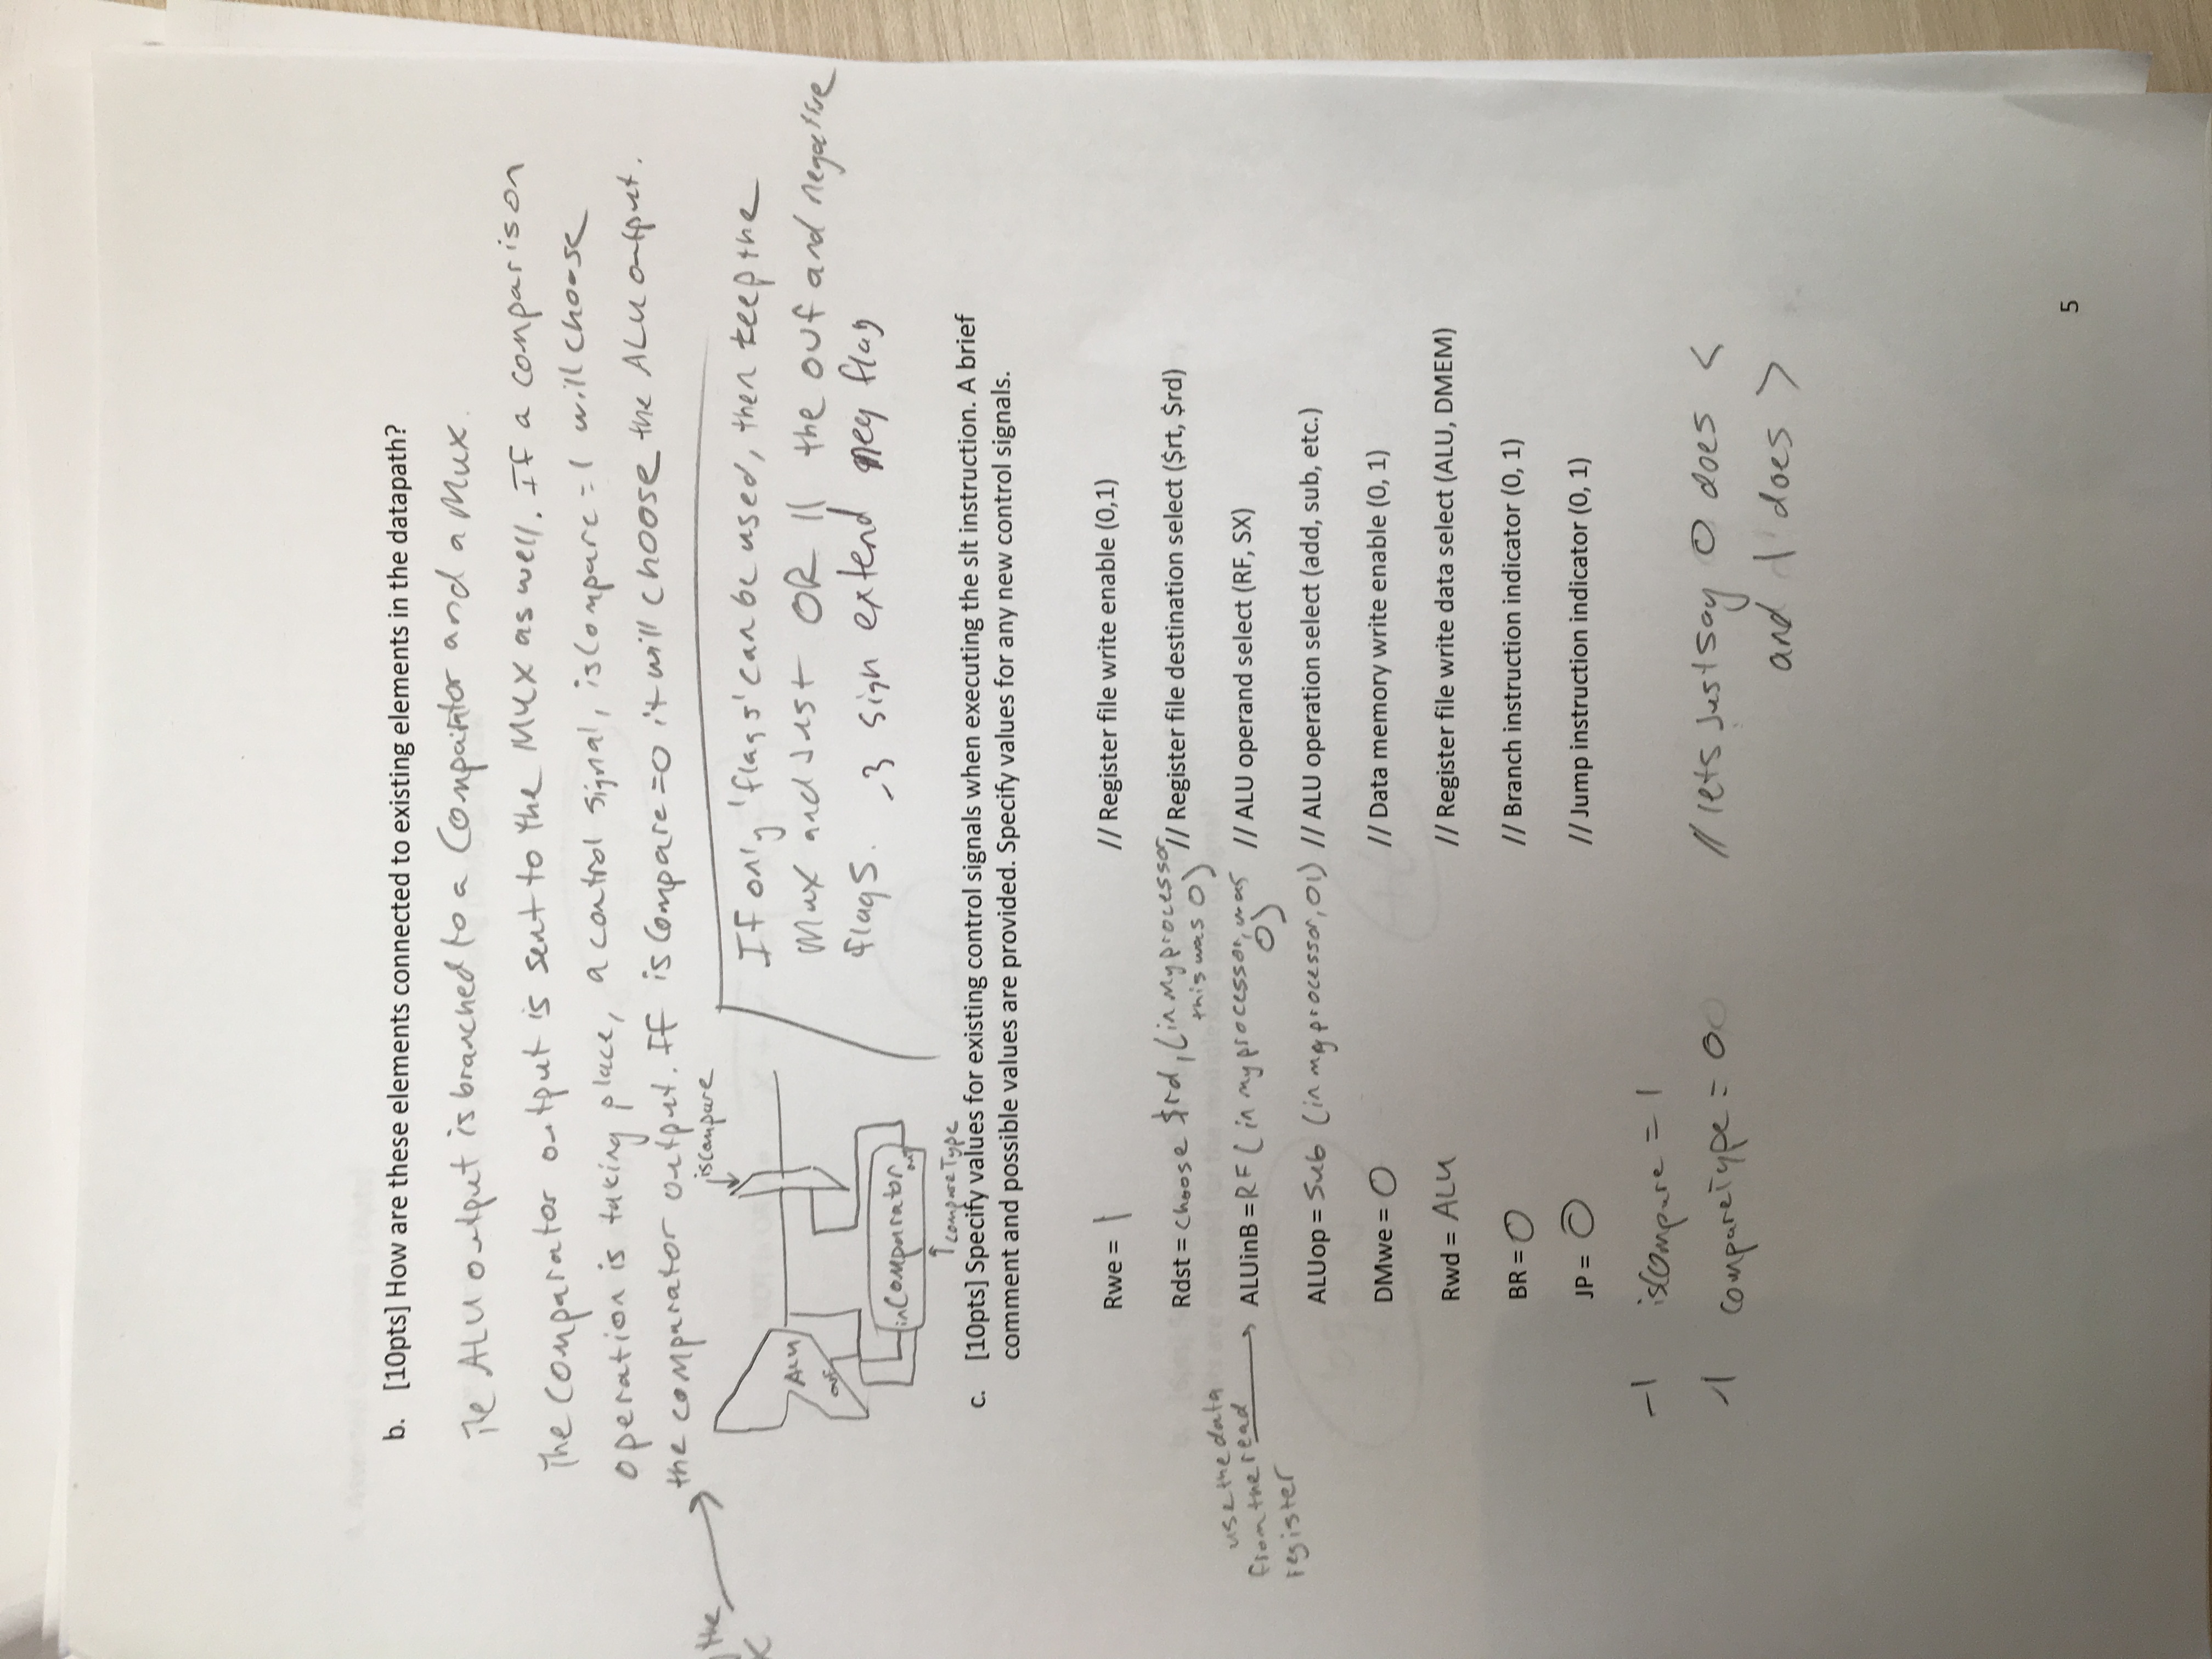 b. [10pts] How are these elements connected to existing elements in the datapath?
The ALU output is branched to a Comparator and a Mux.
The comparator output is sent to the Mux as well. If a comparison
operation is taking place, a control signal, isCompare = 1 will choose
the comparator output. If isCompare = 0 it will choose the ALU output.
the
x
isCompare
ALU
ovf
in Comparator out
compareType
If only 'flags' can be used, then keep the
Mux and Just OR || the ovf and negative
flags. -3 sign extend neg flag
c. [10pts] Specify values for existing control signals when executing the slt instruction. A brief
comment and possible values are provided. Specify values for any new control signals.
Rwe = 1 // Register file write enable (0,1)
Rdst = choose $rd, (in my processor // Register file destination select ($rt, $rd)
this was 0)
use the data
from the read
register
ALUinB = RF (in my processor, was // ALU operand select (RF, SX)
0)
ALUop = Sub (in my processor, 01) // ALU operation select (add, sub, etc.)
DMwe = 0 // Data memory write enable (0, 1)
Rwd = ALU // Register file write data select (ALU, DMEM)
BR = 0 // Branch instruction indicator (0, 1)
JP = 0 // Jump instruction indicator (0, 1)
-1 isCompare = 1
-1 compareType = 0 // lets Just say 0 does <
and 1 does >
5